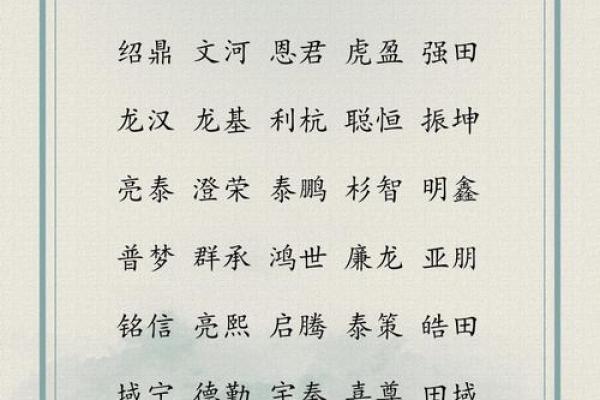 绍鼎 文河 恩君 虎盈 强田
龙汉 龙基 利杭 聪恒 振坤
亮泰 澄荣 泰鹏 杉智 明鑫
普梦 群承 鸿世 廉龙 亚朋
铭信 亮熙 启腾 泰策 皓田
域宁 德勤 宇秦 喜尊 田域